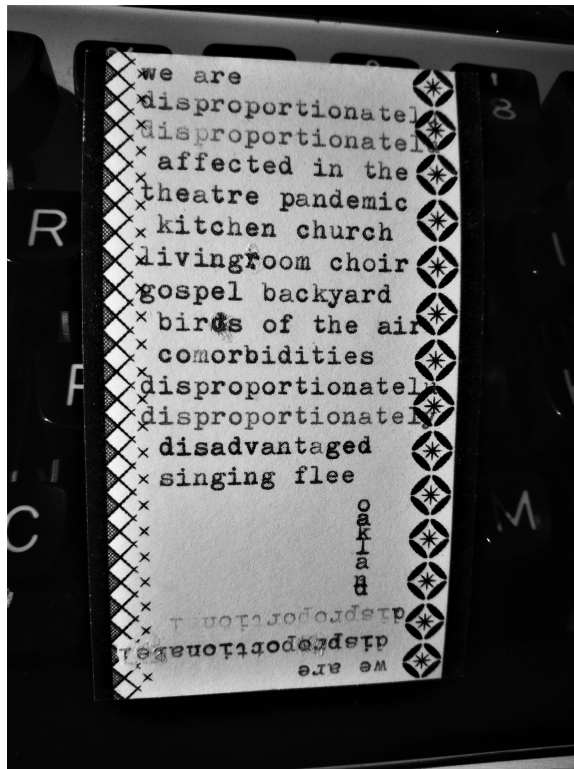 we are
disproportionatel
disproportionately
affected in the
theatre pandemic
kitchen church
livingroom choir
gospel backyard
birds of the air
comorbidities
disproportionately
disproportionately
disadvantaged
singing flee
oakland
we are
disproportionatel
disproportion l
R
C
M
8